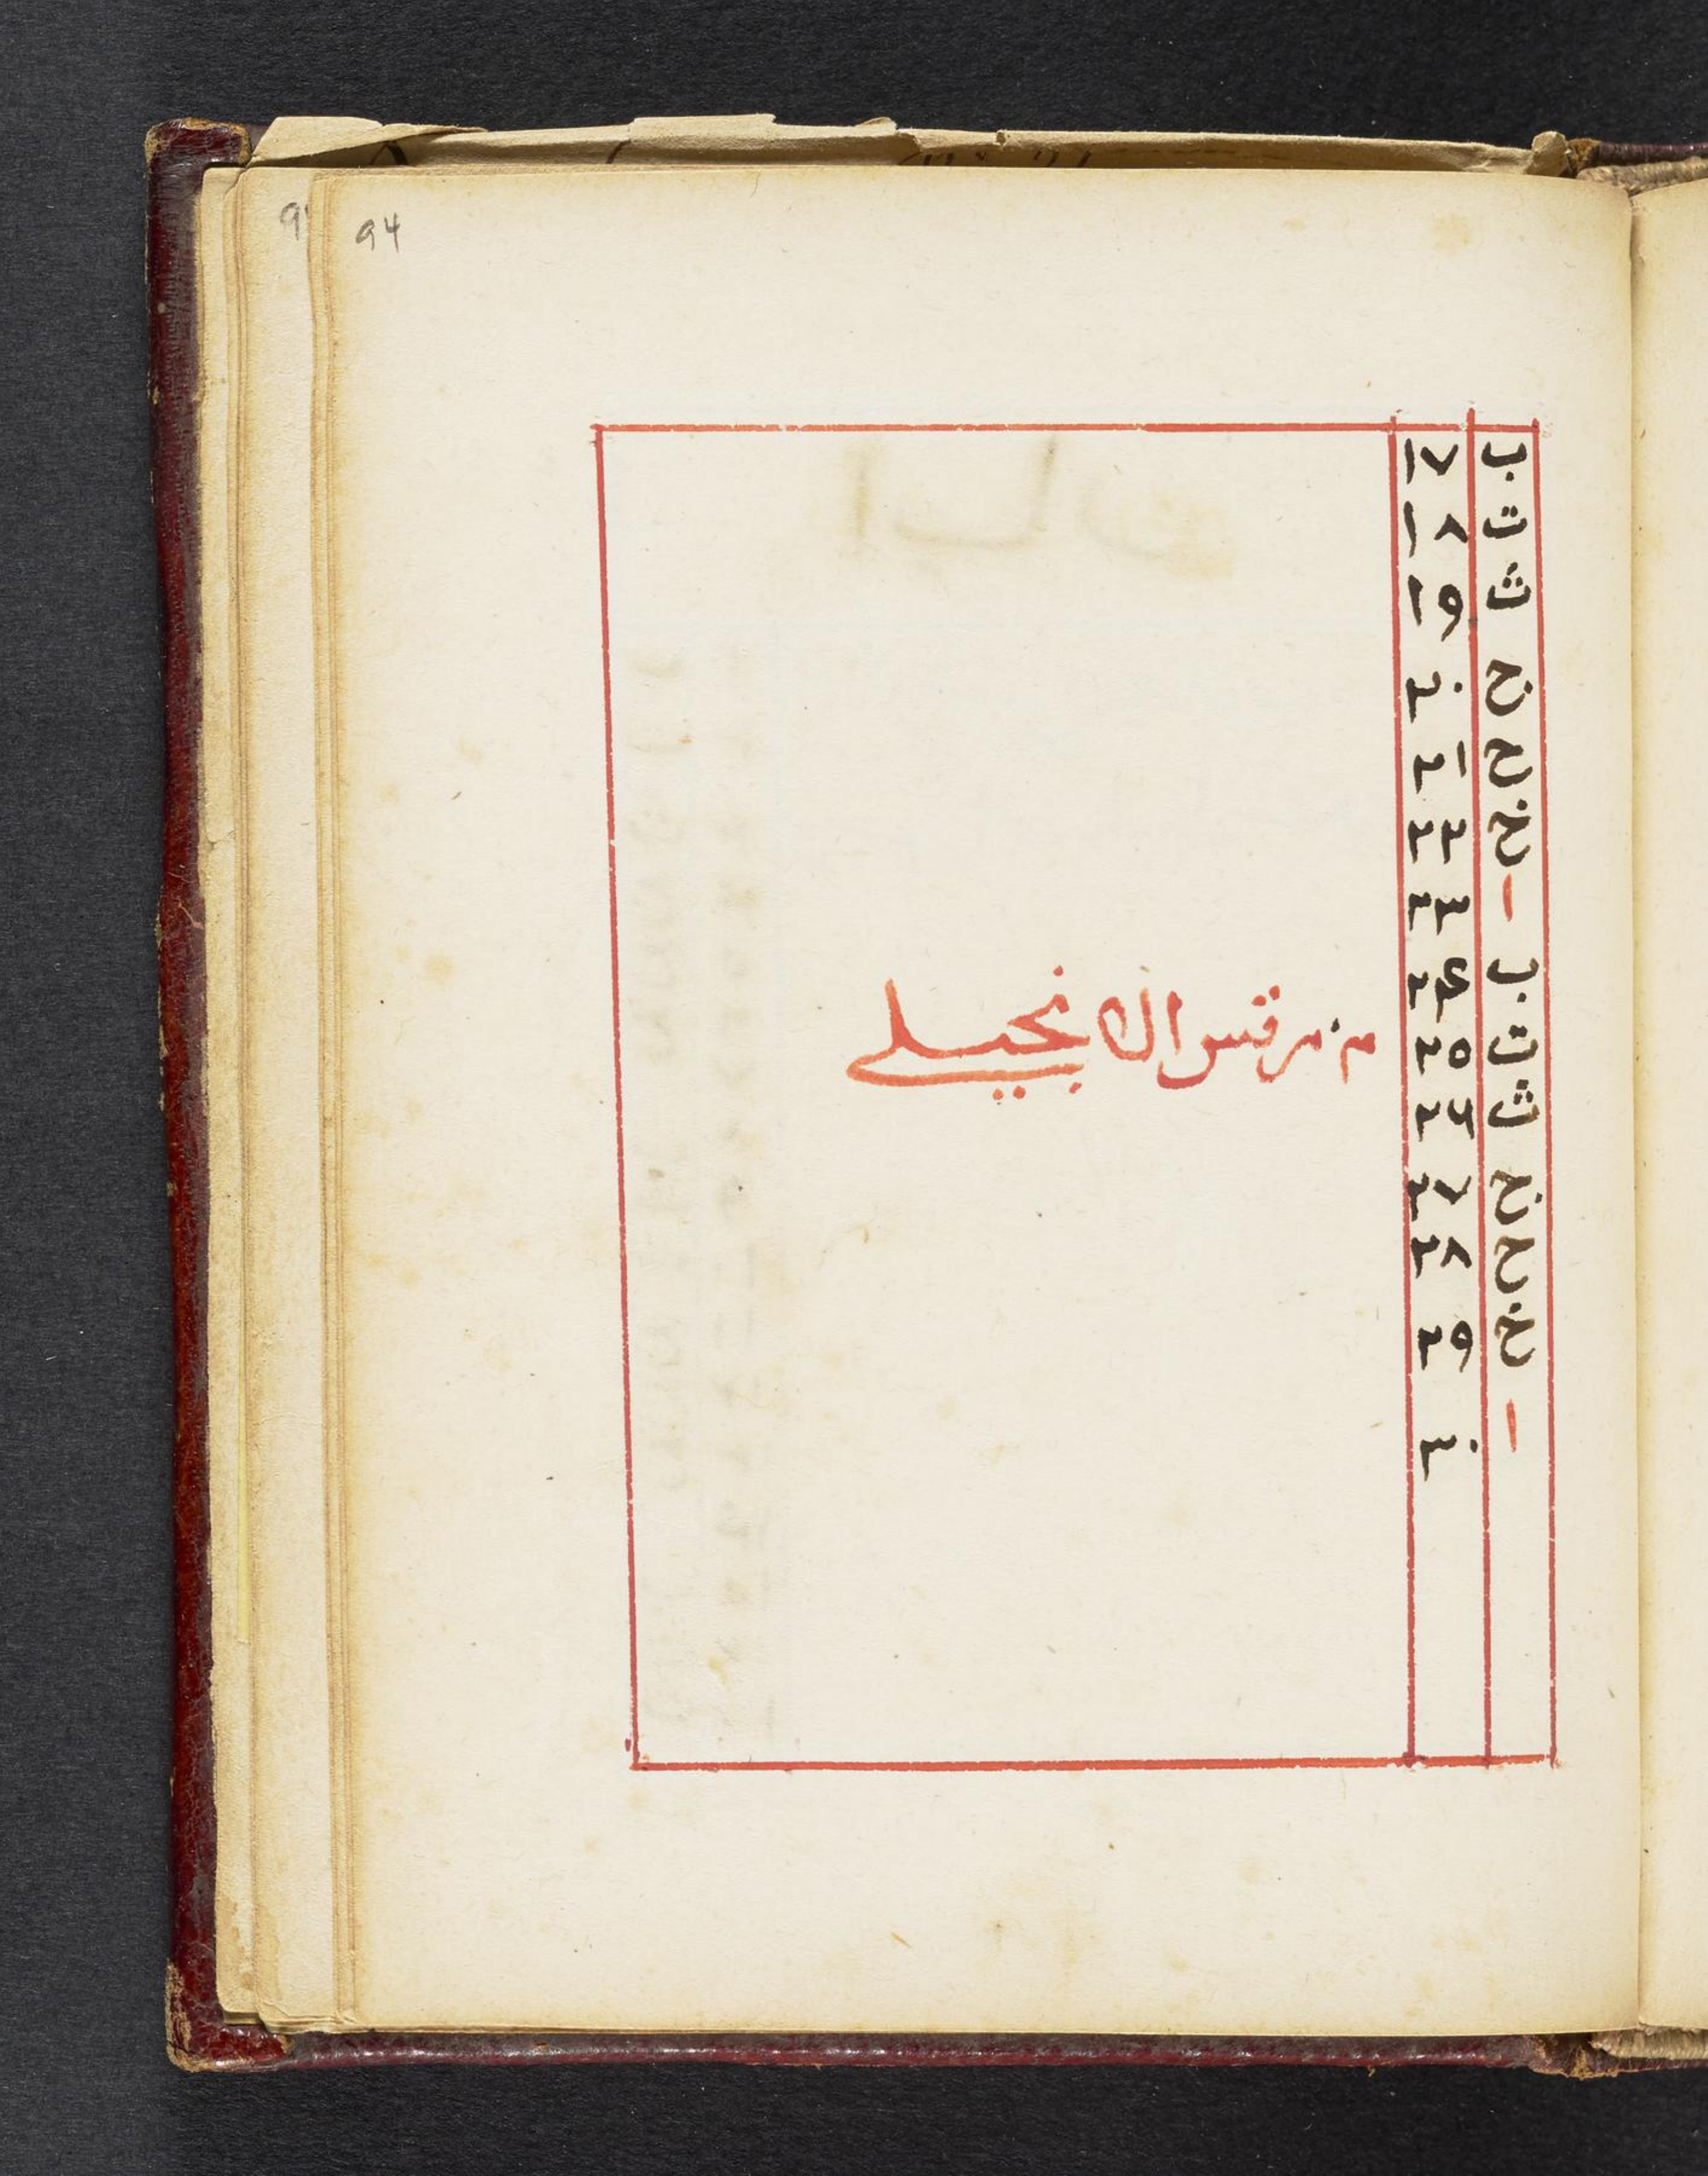 94
ب ١٧
ت ١٨
ث ١٩
ج ٢٠
ح ٢١
خ ٢٢
ا ٢٣
ب ٢٤
ت ٢٥ م. مرقس الانجيلي
ث ٢٦
ج ٢٧
ح ٢٨
خ ٢٩
ا ٣٠